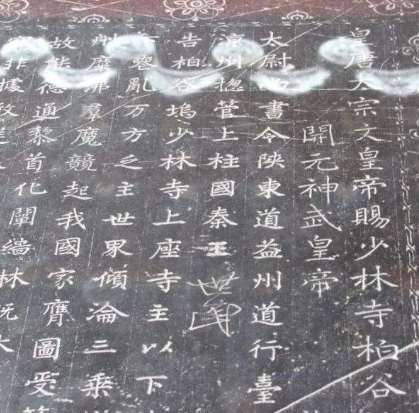 皇唐太宗文皇帝賜少林寺柏谷
開元神武皇帝
太尉書令陝東道益州道行臺
涼州揔管上柱國秦王世民
告柏谷塢少林寺上座寺主以下
喪亂万方乏主世界傾淪三乘
州糜沸羣魔競起我國家膺圖受
故能德通黎首化闡緇林既
非據